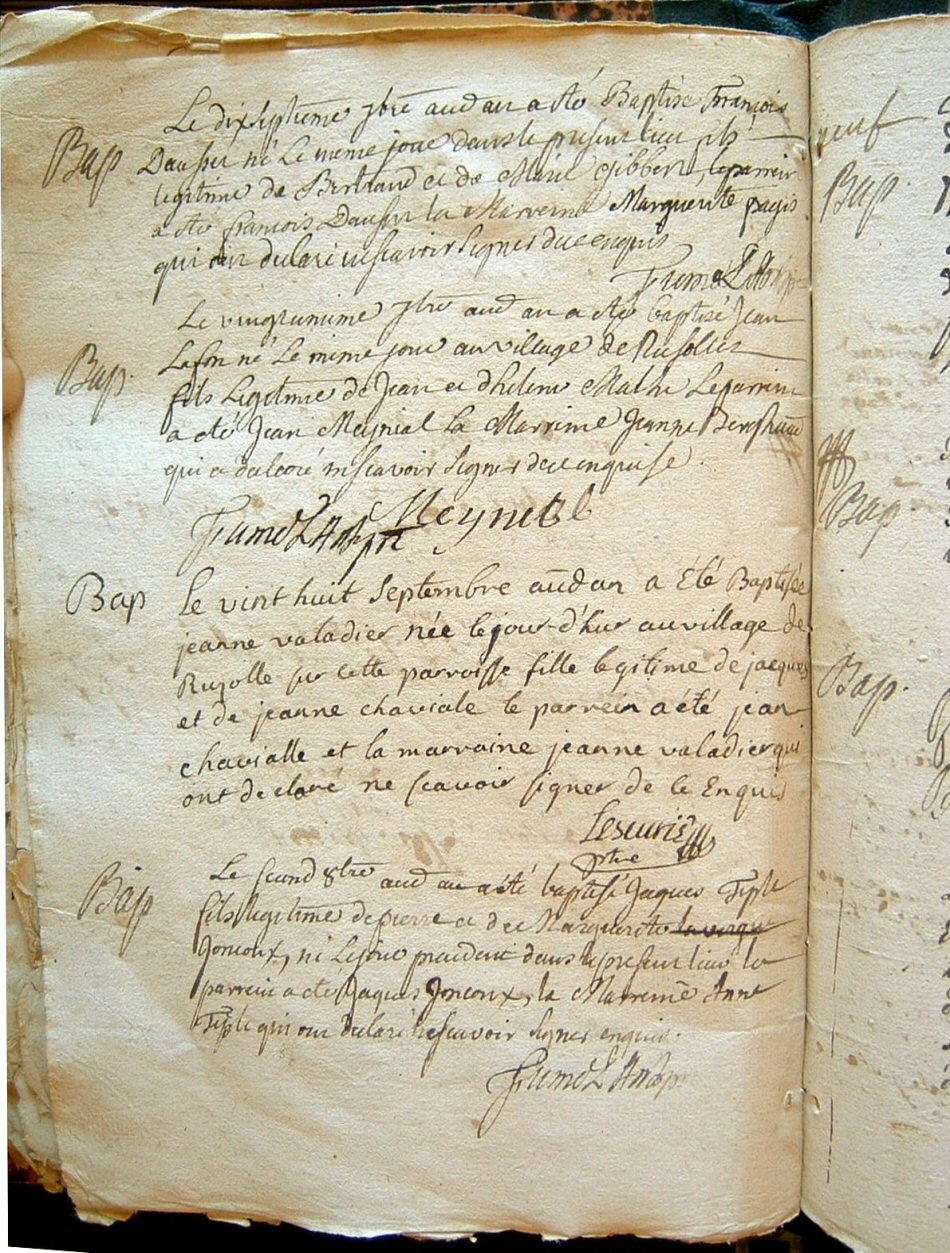 Bap
Le dixseptieme 7bre aud an a été Baptisé François
né Le meme jour dans le present lieu fils
legitime de Bertrand et de Marie Gibbert, le parrein
a été françois la Marreine Marguerite pagis
qui ont declaré ne scavoir signer de ce enquis
Bap
Le vingtunieme 7bre aud an a été baptisé Jean
Lafon né Le meme jour au village de
fils Legitime de Jean et d'helene Mathe Le parrein
a été Jean Meynial La Marreine Jeanne
qui a declaré ne scavoir signer de ce enquise
Meynial
Bap
Le vint huit Septembre aud an a Eté Baptisée
jeanne valadier née le jour d'hur au village de
Ruzolle sur cette parroisse fille legitime de jacques
et de jeanne chaviale le parrein a été jean
chavialle et la marraine jeanne valadier qui
ont declaré ne scavoir signer de ce Enquis
Lescurie
ptre
Bap
Le second 8bre aud an a été baptisé Jaques Tiple
fils legitime de pierre et de Marguerite
Joncoux, né Le jour precedent dans le present lieu le
parrein a été Jaques Joncoux, la Marreine Anne
Tiple qui ont declaré ne scavoir signer enquis.
neuf
Bap.
Bap
Bap.